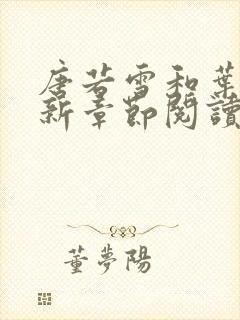 唐若雪和葉
新章節閱讀
董夢陽